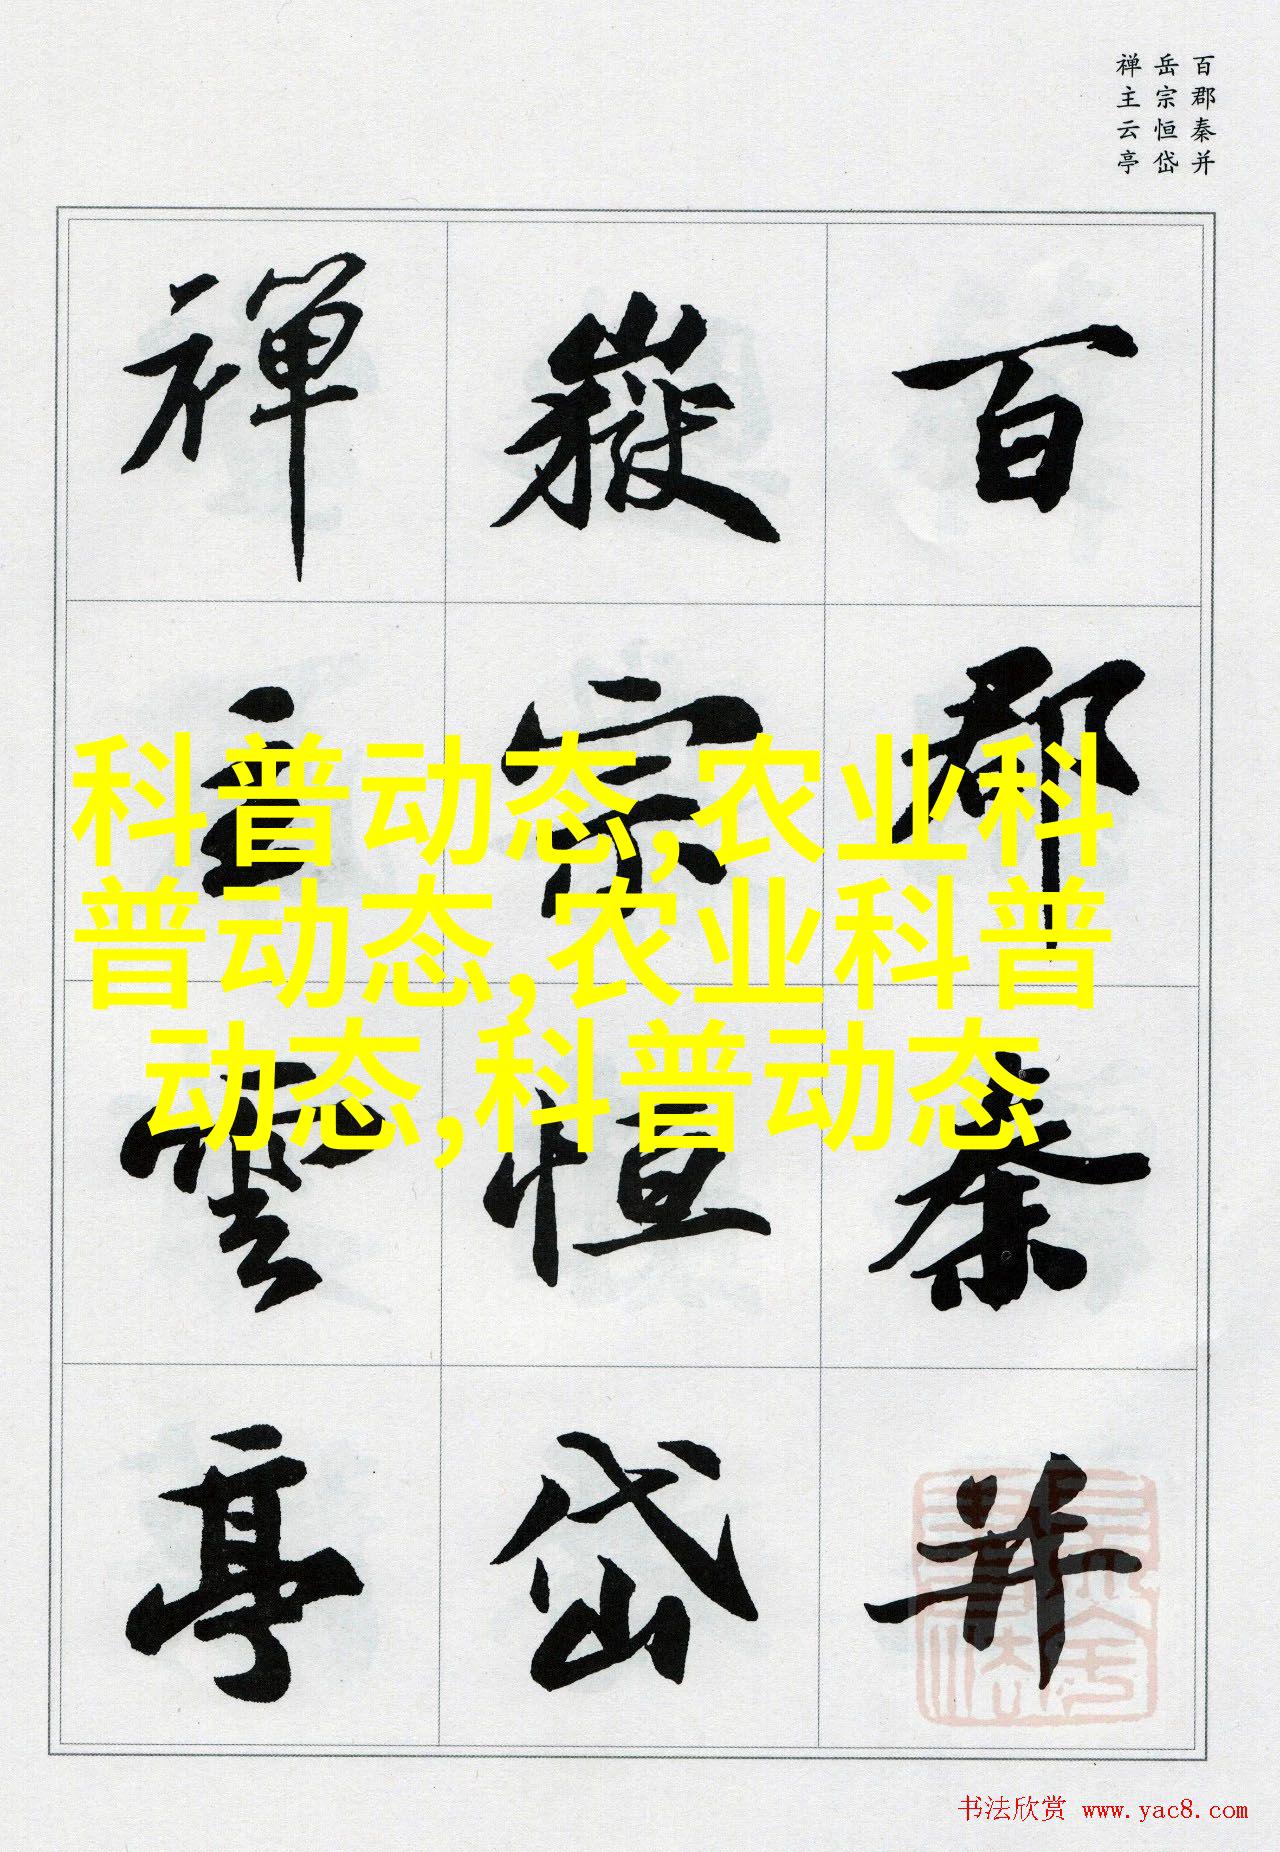 百郡秦并
岳宗恒岱
禅主云亭
百郡秦并
嶽宗恒岱
禅主雲亭
科普动态,农业科
普动态,农业科普
动态,科普动态
书法欣赏 www.yac8.com